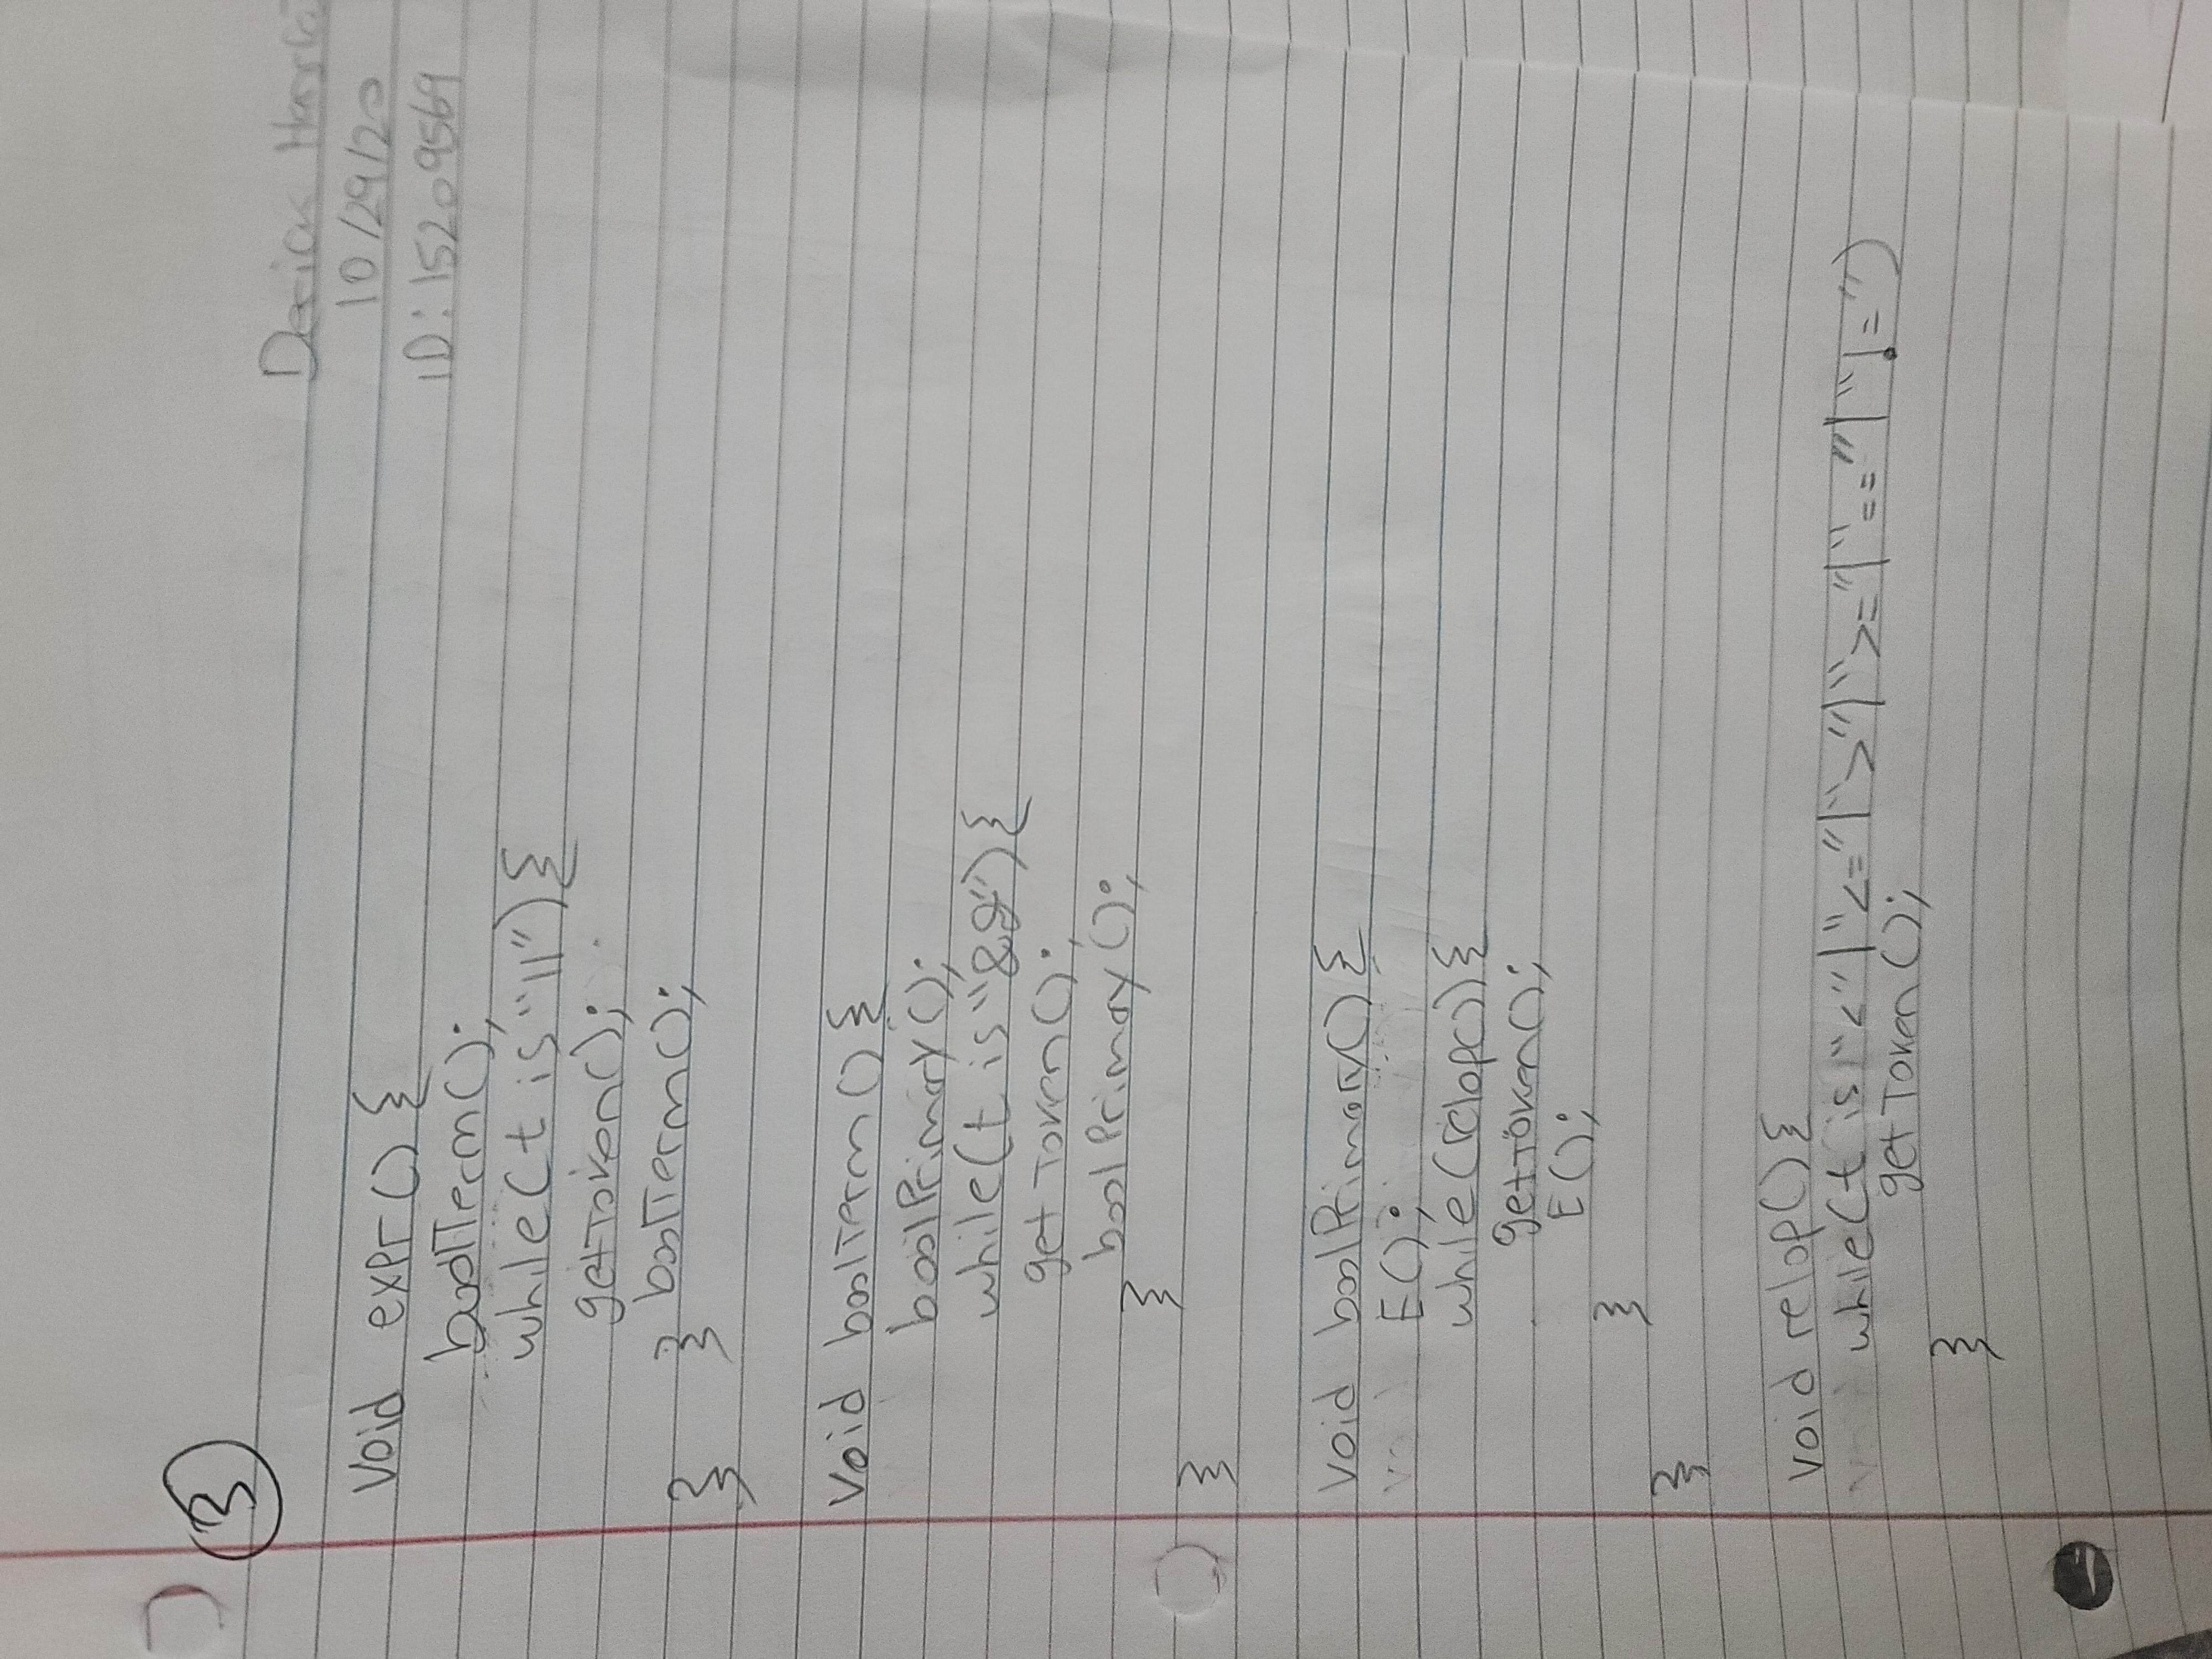 3
Derick
10/29/20
ID: 15209569
void expr() {
boolTerm();
while(t is "||") {
getToken();
} } boolTerm();
void boolTerm() {
boolPrimary();
while(t is "&&") {
get Token();
boolPrimay();
}
}
void boolPrimary() {
E();
while(relop()) {
getToken();
E();
}
}
void relop() {
while(t is "<"|"<="|">"|">="|"=="|"!=")
get Token();
}